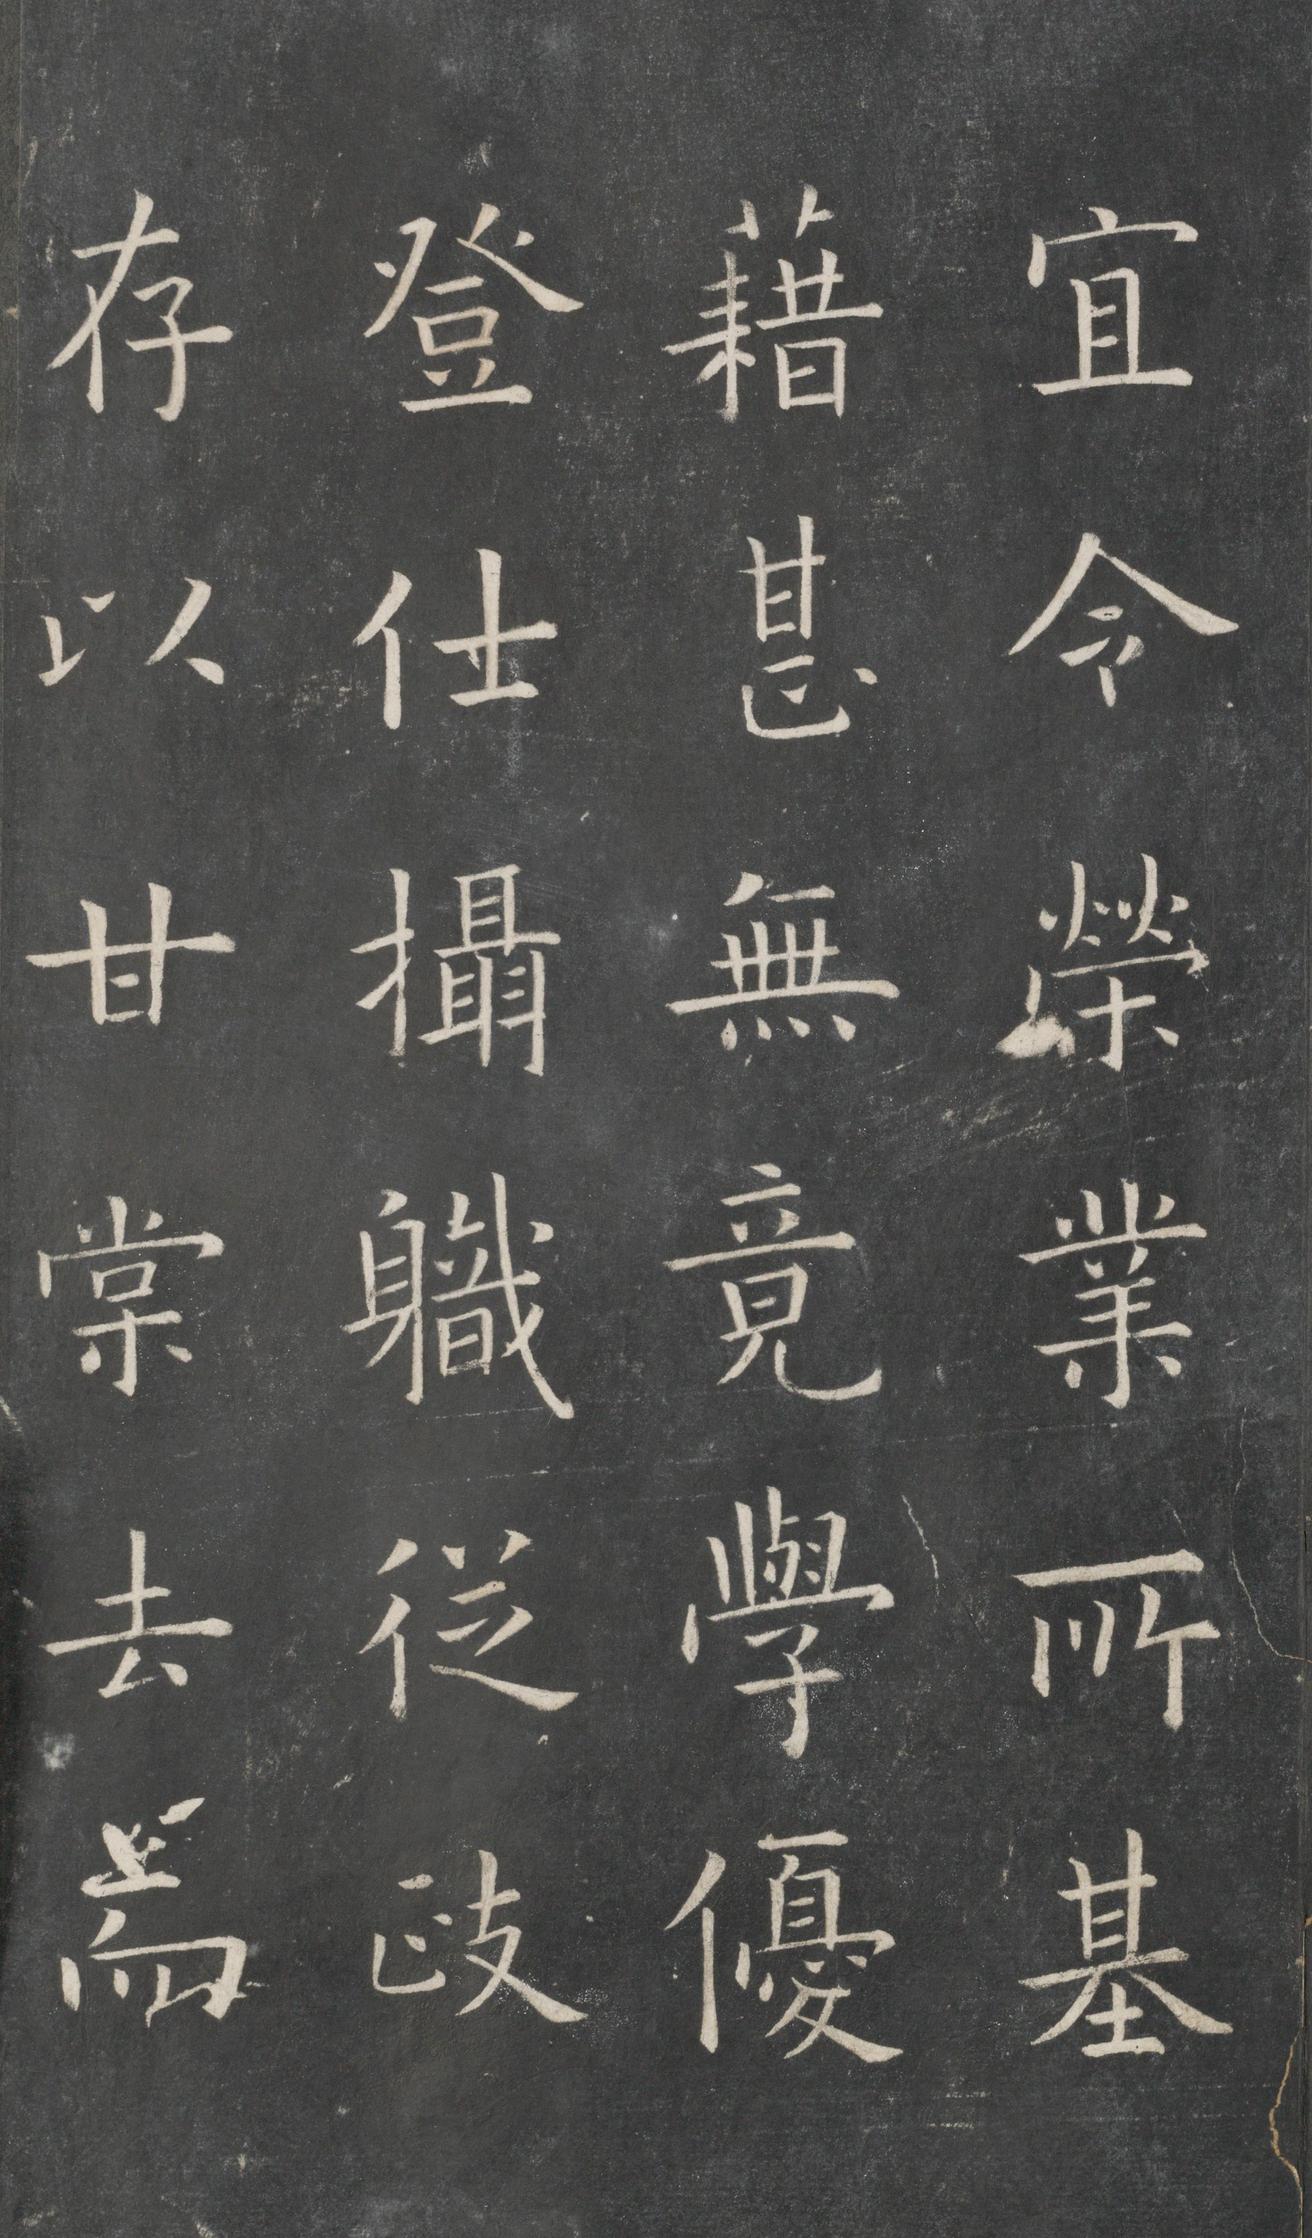 宜令榮業所基
藉甚無竟學優
登仕攝職從政
存以甘棠去而